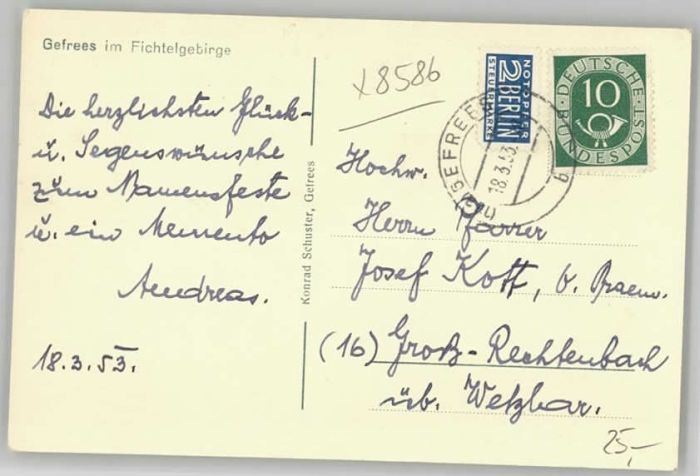 Gefrees im Fichtelgebirge
Die herzlichsten Glück-
u. Segenswünsche
zum Namensfeste
u. ein Memento
Andreas.
18.3.53.
Konrad Schuster, Gefrees
x8586
NOTOPFER
2 BERLIN
STEUERMARKE
DEUTSCHE
10
BUNDESPOST
GEFREES
18.3.53.
b
Hochw.
Herrn Pfarrer
Josef Kott, b. Praem.
(16) Groß-Rechtenbach
üb. Wetzlar.
25,-